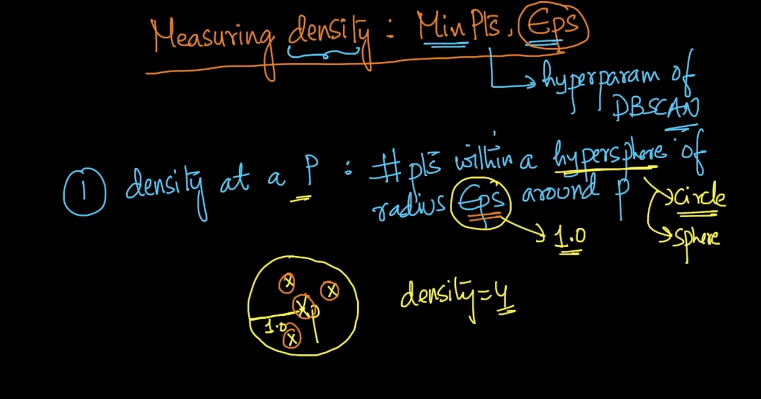 Measuring density : MinPts, Eps
hyperparam of
DBSCAN
① density at a P : #pts within a hypersphere of
radius Eps around p
circle
sphere
1.0
density = 4
x
x
x p
1.0
x